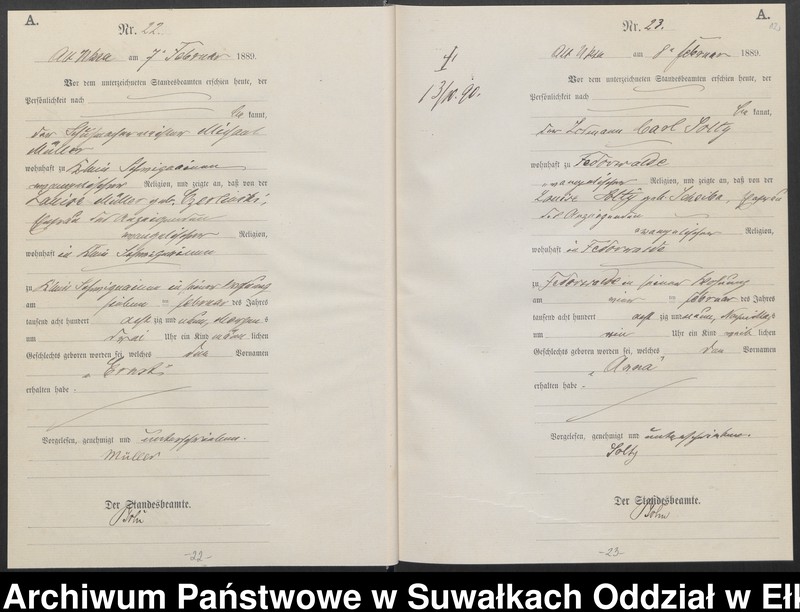 A.
Nr. 22.
Alt Ukta am 7. Februar 1889.
Vor dem unterzeichneten Standesbeamten erschien heute, der
Persönlichkeit nach
be kannt,
der Schuhmachermeister
Müller
wohnhaft zu Klein
evangelischer Religion, und zeigte an, daß von der
Louise Müller geb.
Ehefrau des Anzeigenden
evangelischer Religion,
wohnhaft in Klein
zu Klein in seiner Wohnung
am sieben ten Februar des Jahres
tausend acht hundert acht zig und neun, Morgens
um drei Uhr ein Kind männ lichen
Geschlechts geboren worden sei, welches den Vornamen
„Ernst"
erhalten habe.
Vorgelesen, genehmigt und unterschrieben.
Müller
Der Standesbeamte.
-22-
A.
Nr. 23.
Alt Ukta am 8. Februar 1889.
Vor dem unterzeichneten Standesbeamten erschien heute, der
Persönlichkeit nach
be kannt,
der Losmann Carl Solty
wohnhaft zu Fedorwalde
evangelischer Religion, und zeigte an, daß von der
Louise Solty geb. Ehefrau
des Anzeigenden
evangelischer Religion,
wohnhaft in Fedorwalde
zu Fedorwalde in seiner Wohnung
am vier ten Februar des Jahres
tausend acht hundert acht zig und neun,
um Uhr ein Kind weib lichen
Geschlechts geboren worden sei, welches den Vornamen
„Anna"
erhalten habe.
Vorgelesen, genehmigt und unterschrieben.
Solty
Der Standesbeamte.
-23-
Archiwum Państwowe w Suwałkach Oddział w Eł